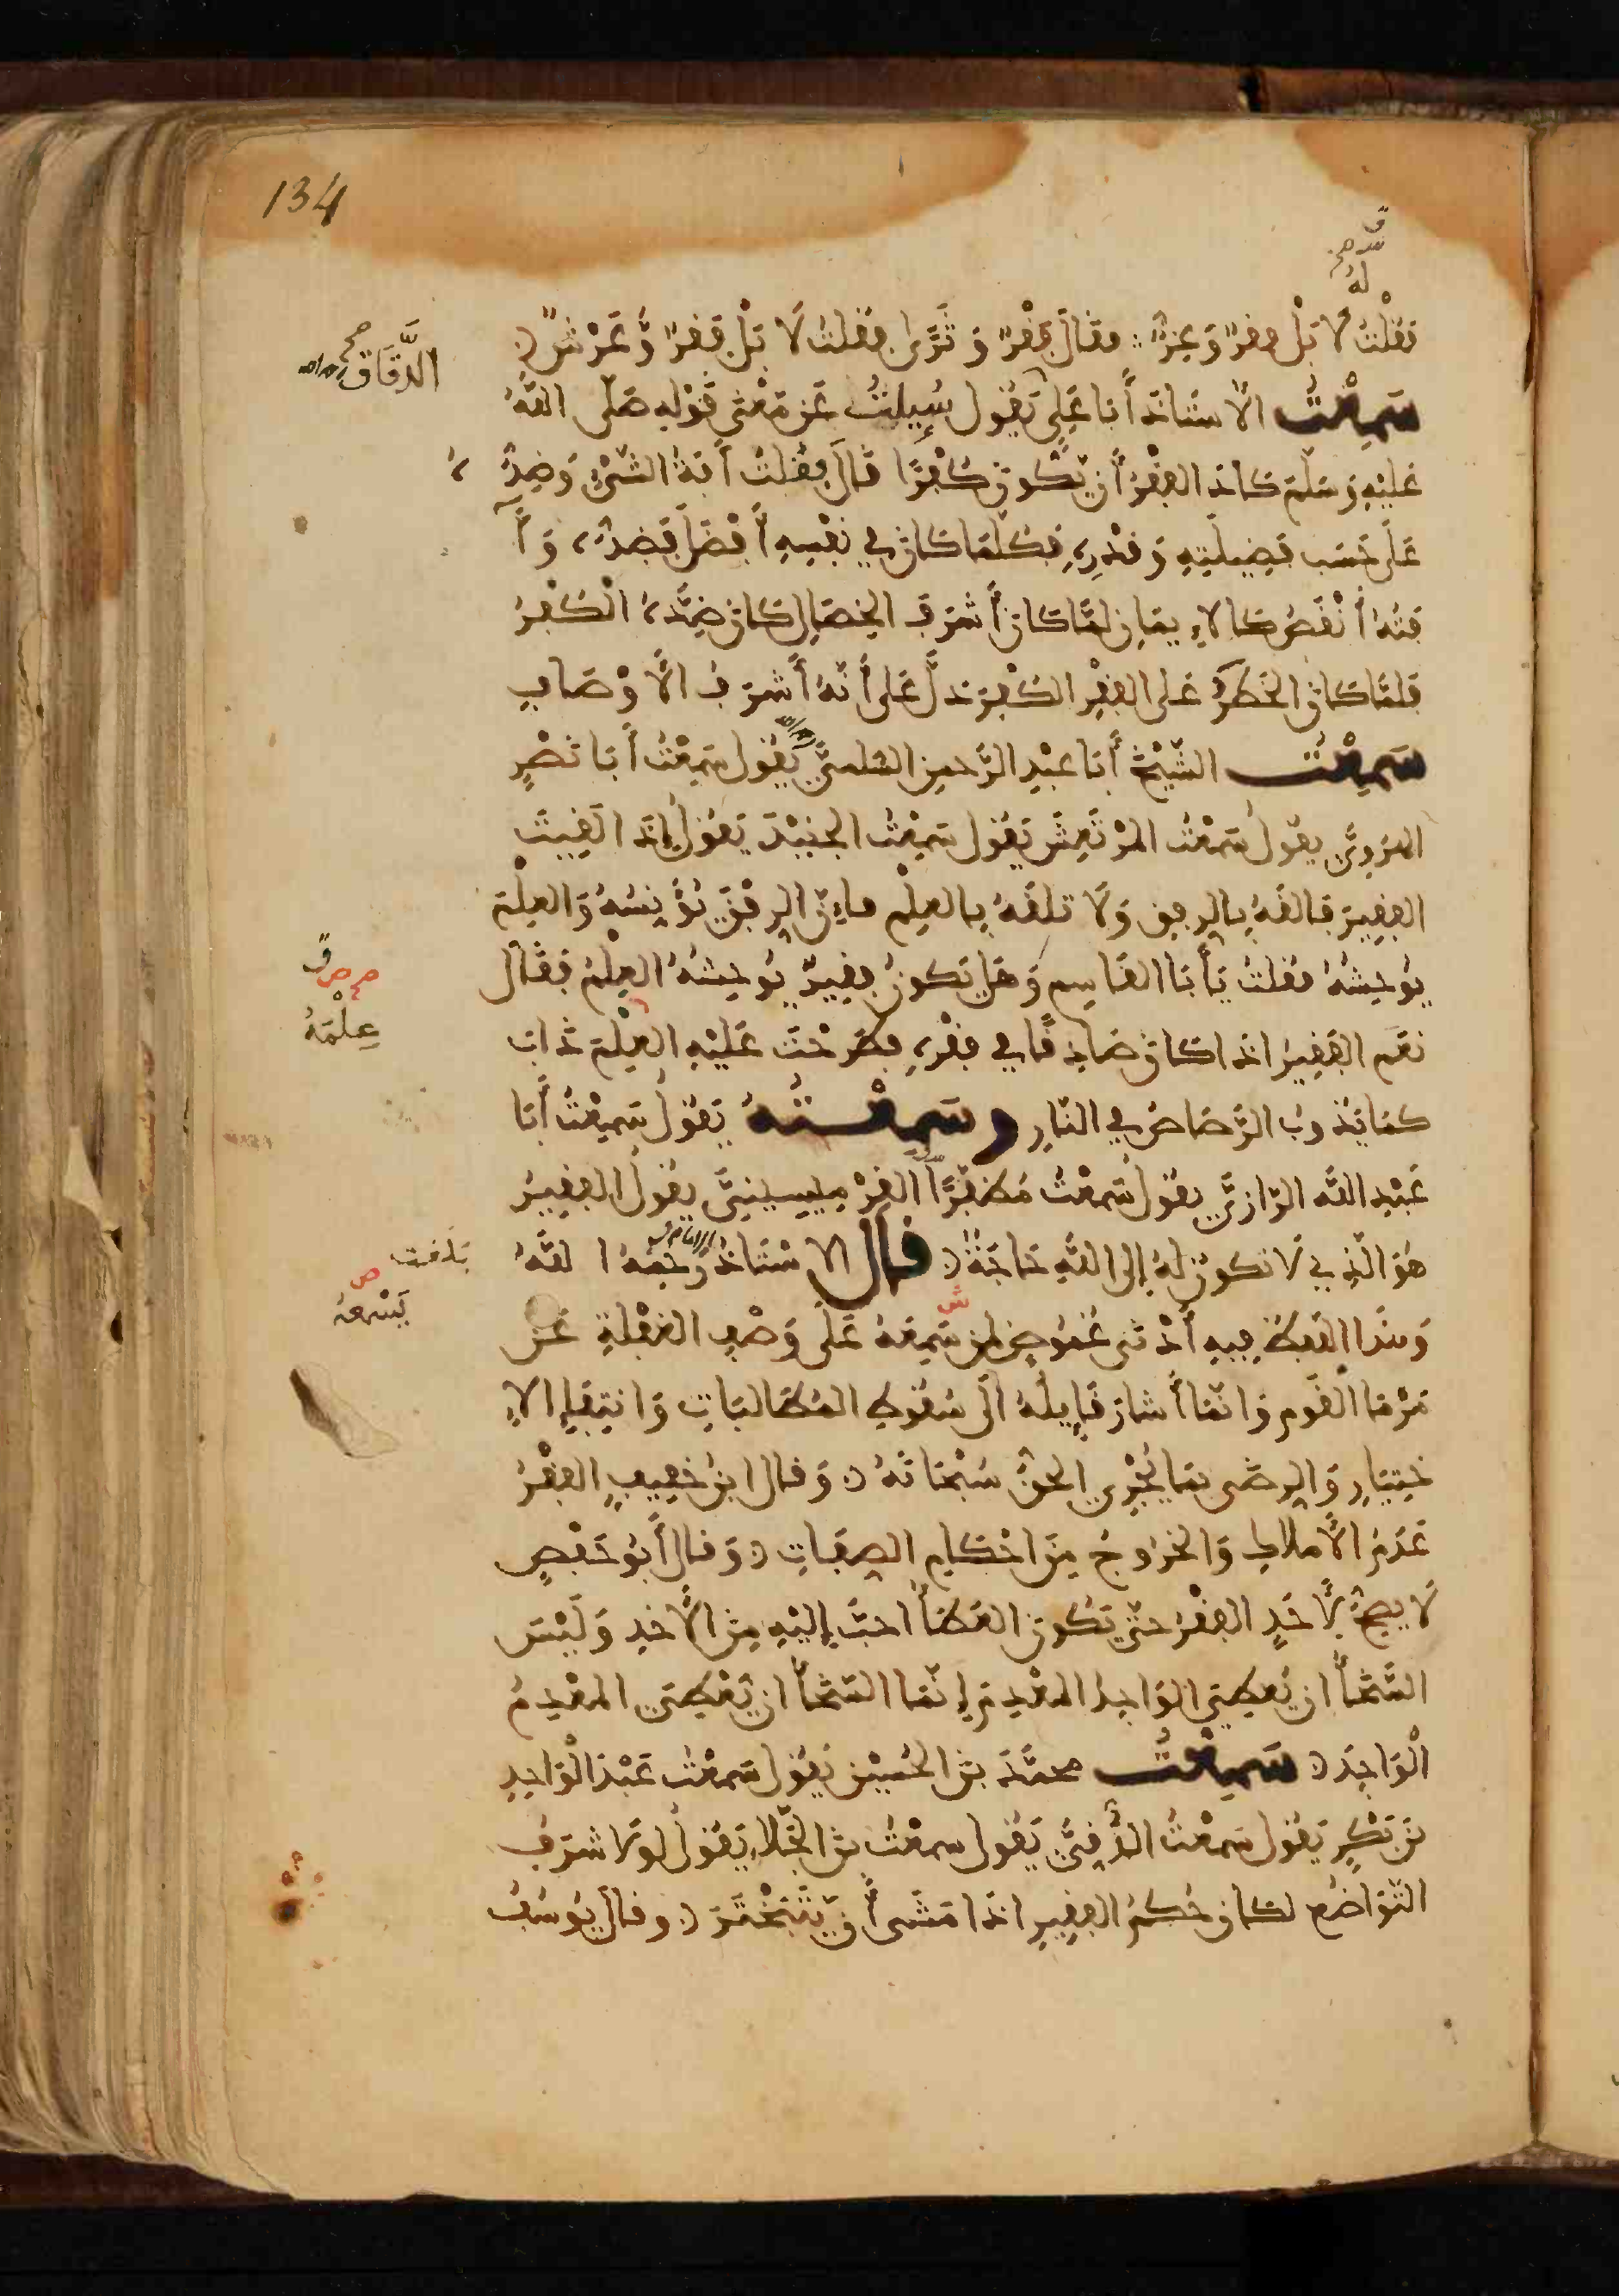 134
ق
صح
لَهُ
فَقُلْتُ لَا بَلْ فقرٌ وَعِزٌّ فقَالَ فَقْرٌ وَثَرَى فقلتُ لَا بَلْ فَقرٌ وَّعَرْشٌ
الدَّقَّاقَ صح
سَمِعْتُ الأستاذ أبَا عَلِيّ يَقُول سُيِلتُ عَن مَعْنَى قَوْلِه صَلَّى اللَّهُ
عَلَيْهِ وَسَلَّمَ كَادَ الفَقْرُ أَن يَّكُونَ كُفْرًا قَالَ فقلتُ آفَةُ الشَّيْءِ وَضِدُّهُ
عَلَى حَسَبِ فَضِيلَتِهِ وَقَدْرِهِ فَكُلَّمَا كَانَ في نَفْسِهِ أَفْضَلَ فَضِدُّهُ وَآ
فَتُهُ أَنْقَصُ كَالاِيمَانِ لَمَّا كَانَ أَشْرَفَ الخِصَالِ كَانَ ضِدُّهُ الْكُفْرُ
فَلَمَّا كَانَ الخَطَرُ عَلى الفَقْرِ الكُفْرَ دَلَّ عَلى أَنَّهُ أَشْرَفُ الأَوْصَافِ
سَمِعْتُ الشَّيْخَ أَبَا عَبْدِ الرَّحمنِ السُّلَمِيَّ يَقُول سَمِعْتُ أَبَا نَصْرٍ
الهَرَوِيَّ يقُول سَمِعْتُ المُرْتَعِشَ يَقُول سَمِعْتُ الجُنَيْدَ يَقُول إذَا لَقِيتَ
الفَقِيرَ فَالْقَهُ بِالرِّفقِ وَلَا تَلقَهُ بِالعِلْمِ فإنَّ الرِّفْقَ يُؤْنِسُهُ وَالعِلْمَ
يُوحِشُهُ فقلتُ يَأَبَا القَاسِم وَهَل يَكُونُ فقِيرٌ يُوحِشُهُ العِلْمُ فَقَالَ
ق ص صح
عِلْمَهُ
نَعَم الفَقِيرُ اذَا كَانَ صَادِقًا في فَقْرِهِ فطَرَحْتَ عَلَيْهِ العِلْمَ ذَابَ
كَمَا يَذُوبُ الرَّصَاصُ في النَّارِ وسَمِعْتُهُ يَقُولُ سَمِعْتُ أَبَا
عَبْدِ اللَّه الرَّازِيَّ يَقُولُ سَمِعْتُ مُظَفَّرًا القِرْمِيسِينِيَّ يقُولُ الفَقِيرُ
هُوَ الَّذِي لَا تكُونُ لَهُ إِلَى اللَّهِ حَاجَةٌ قَالَ الاسْتَاذُ الامام رَحِمَهُ اللَّهُ
بَلَغت
ص
يَسْمعُهُ
ش
وَهَذَا اللفظ فِيهِ أَدْنَى غُمُوضٍ لِمَن سَمِعَهُ عَلَى وَصْفِ الغَفْلَةِ عَنْ
مَرْمَا القَوم وَانَّمَا أَشَارَ قَايِلُهُ الَى سُقُوطِ المُطَالَبَاتِ وَانتِفَاءِ الا
خْتِيَارِ وَالرِّضَى بِمَا يُجْرِي الحَقُّ سُبْحَانَهُ وَقَال ابنُ خَفِيفٍ الفَقْرُ
عَدَمُ الأَملاكِ وَالخُرُوجُ مِنَ احْكَامِ الصِّفَاتِ وَقَال أَبُو حَفْصٍ
لَا يصِحُّ لأَحَدٍ الفَقْرُ حَتَّى يَكُونَ العَطَاءُ احَبَّ إلَيْهِ مِنَ الأَخذِ وَلَيْسَ
السَّخَاءُ ان يُعطِيَ الوَاجِدُ المُعْدِمَ إنَّمَا السَّخَاءُ ان يُعْطِيَ المُعْدِمُ
الْوَاجِدَ سَمِعْتُ محمَّدَ بنَ الحُسَيْنِ يَقُول سَمِعْتُ عَبْدَ الْوَاحِدِ
بْنَ بَكْرٍ يَقُول سَمِعْتُ الدُّقِّيَّ يَقُول سمعْتُ بنَ الجَلَّاءِ يَقُول لَوْلَا شَرَفُ
التَّوَاضُعِ لكَانَ حُكْمُ الفَقِيرِ اذَا مَشَى أَن يَّتَبَخْتَرَ وقال يُوسُفُ